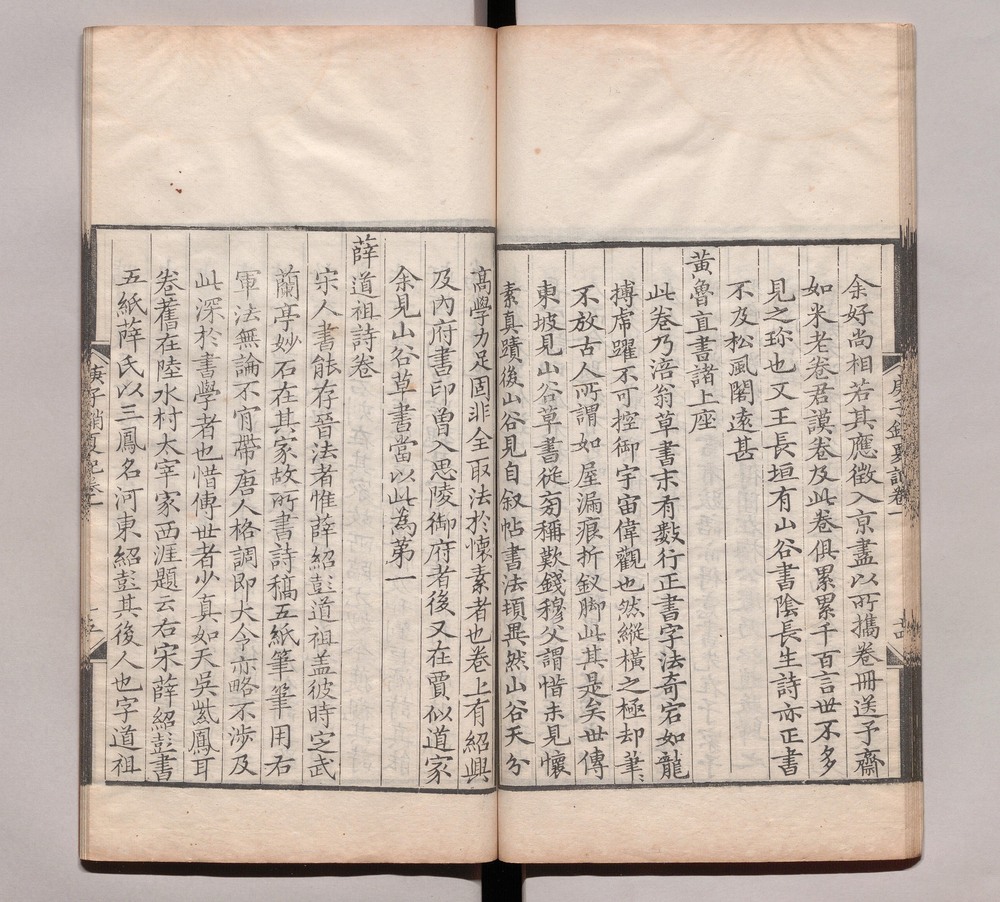 余好尚相若其應徵入京盡以所攜卷冊送予齋
如米老卷君謨卷及此卷俱累累千百言世不多
見之珎也又王長垣有山谷書陰長生詩亦正書
不及松風閣遠甚
黃魯直書諸上座
此卷乃涪翁草書末有數行正書字法奇宕如龍
搏虎躍不可控御宇宙偉觀也然縱橫之極却筆〻
不放古人所謂如屋漏痕折釵脚此其是矣世傳
東坡見山谷草書從旁稱歎錢穆父謂惜未見懷
素真蹟後山谷見自叙帖書法頓異然山谷天分
高學力足固非全取法於懷素者也卷上有紹興
及內府書印曾入思陵御府者後又在賈似道家
余見山谷草書當以此為第一
薛道祖詩卷
宋人書能存晉法者惟薛紹彭道祖盖彼時定武
蘭亭妙石在其家故所書詩稿五紙筆筆用右
軍法無論不宵帶唐人格調即大令亦略不涉及
此深於書學者也惜傳世者少真如天吳紫鳳耳
卷舊在陸水村太宰家西涯題云右宋薛紹彭書
五紙薛氏以三鳳名河東紹彭其後人也字道祖
庚子銷夏記卷一
十四
庚子銷夏記卷一
十五